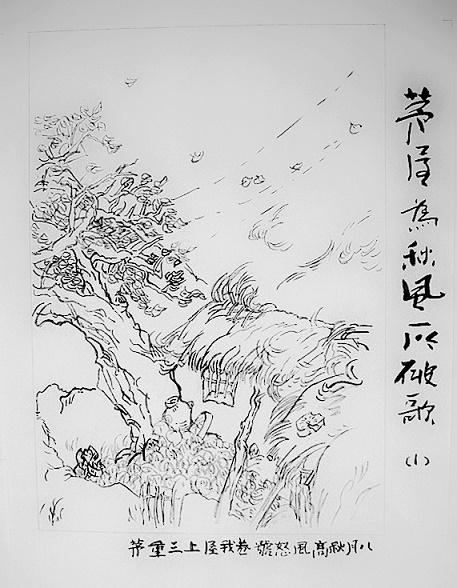 茅屋為秋風所破歌(1)
八月秋高風怒號卷我屋上三重茅